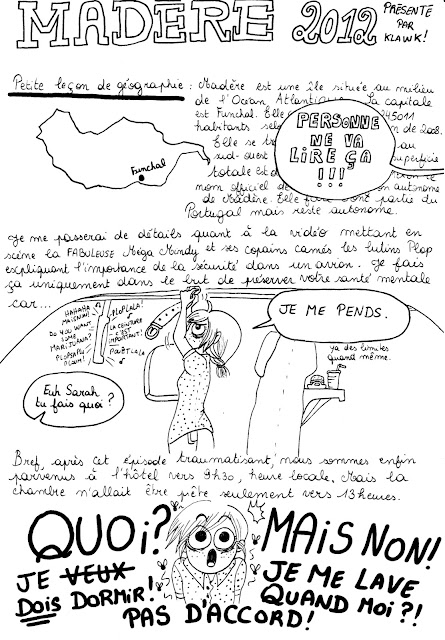 MADÈRE 2012
PRÉSENTÉ
PAR
KLAWK!
Petite leçon de géographie : Madère est une île située au milieu
de l'Océan Atlantique. La capitale
est Funchal. Elle 245011
habitants de 2008.
Elle se au
sud-ouest superficie
totale est d
nom officiel de autonome
de Madère. Elle fait dont partie du
Portugal mais reste autonome.
Funchal
PERSONNE
NE VA
LIRE ÇA
!!!
Je me passerai de détails quant à la vidéo mettant en
scène la FABULEUSE Mega Mindy et ses copains camés les lutins Plop
expliquant l'importance de la sécurité dans un avion. Je fais
ça uniquement dans le but de préserver votre santé mentale
car...
HAHAHA
DO YOU WANT
SOME
MARIJUANA?
PLOPLALA!
LA CEINTURE
C'EST
IMPORTANT!
POUËTLALA
JE ME PENDS.
ya des limites
quand même.
Euh Sarah
tu fais quoi ?
Bref, après cet épisode traumatisant, nous sommes enfin
parvenus à l'hôtel vers 9h30, heure locale. Mais la
chambre n'allait être prête seulement vers 13 heures.
QUOI?
JE VEUX
DOIS DORMIR!
MAIS NON!
JE ME LAVE
QUAND MOI ?!
PAS D'ACCORD!